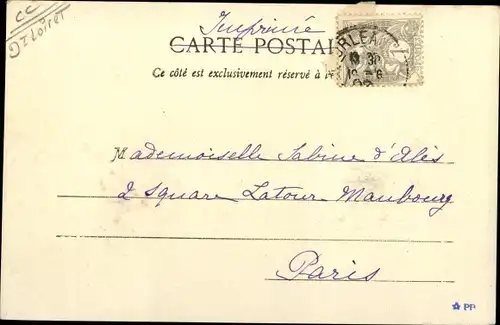 CC
Dt Loiret
Imprimé
CARTE POSTAL
Ce côté est exclusivement réservé à l'
ORLEA
Mademoiselle Sabine d'Alès
2 Square Latour Maubourg
Paris
PP